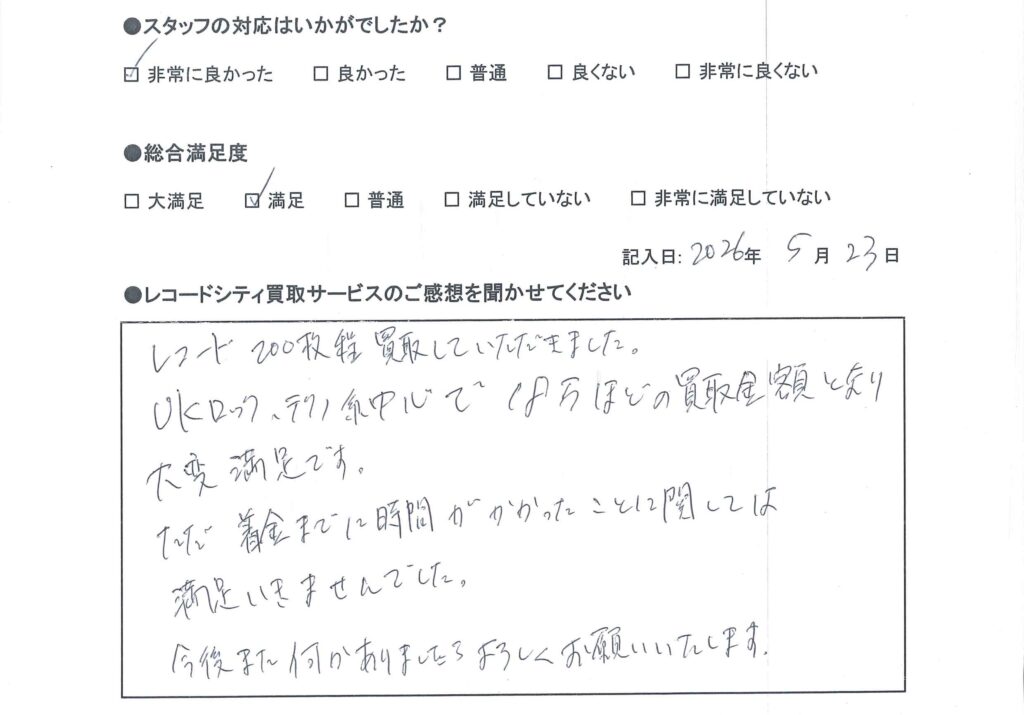 ●スタッフの対応はいかがでしたか？
☑ 非常に良かった □ 良かった □ 普通 □ 良くない □ 非常に良くない
●総合満足度
□ 大満足 ☑ 満足 □ 普通 □ 満足していない □ 非常に満足していない
記入日: 2026年 5月 23日
●レコードシティ買取サービスのご感想を聞かせてください
レコード 200枚程買取していただきました。
UKロック、テクノ系中心で 18万ほどの買取金額となり
大変満足です。
ただ 着金までに時間がかかったことに関しては
満足いきませんでした。
今後また何かありましたらよろしくお願いいたします。